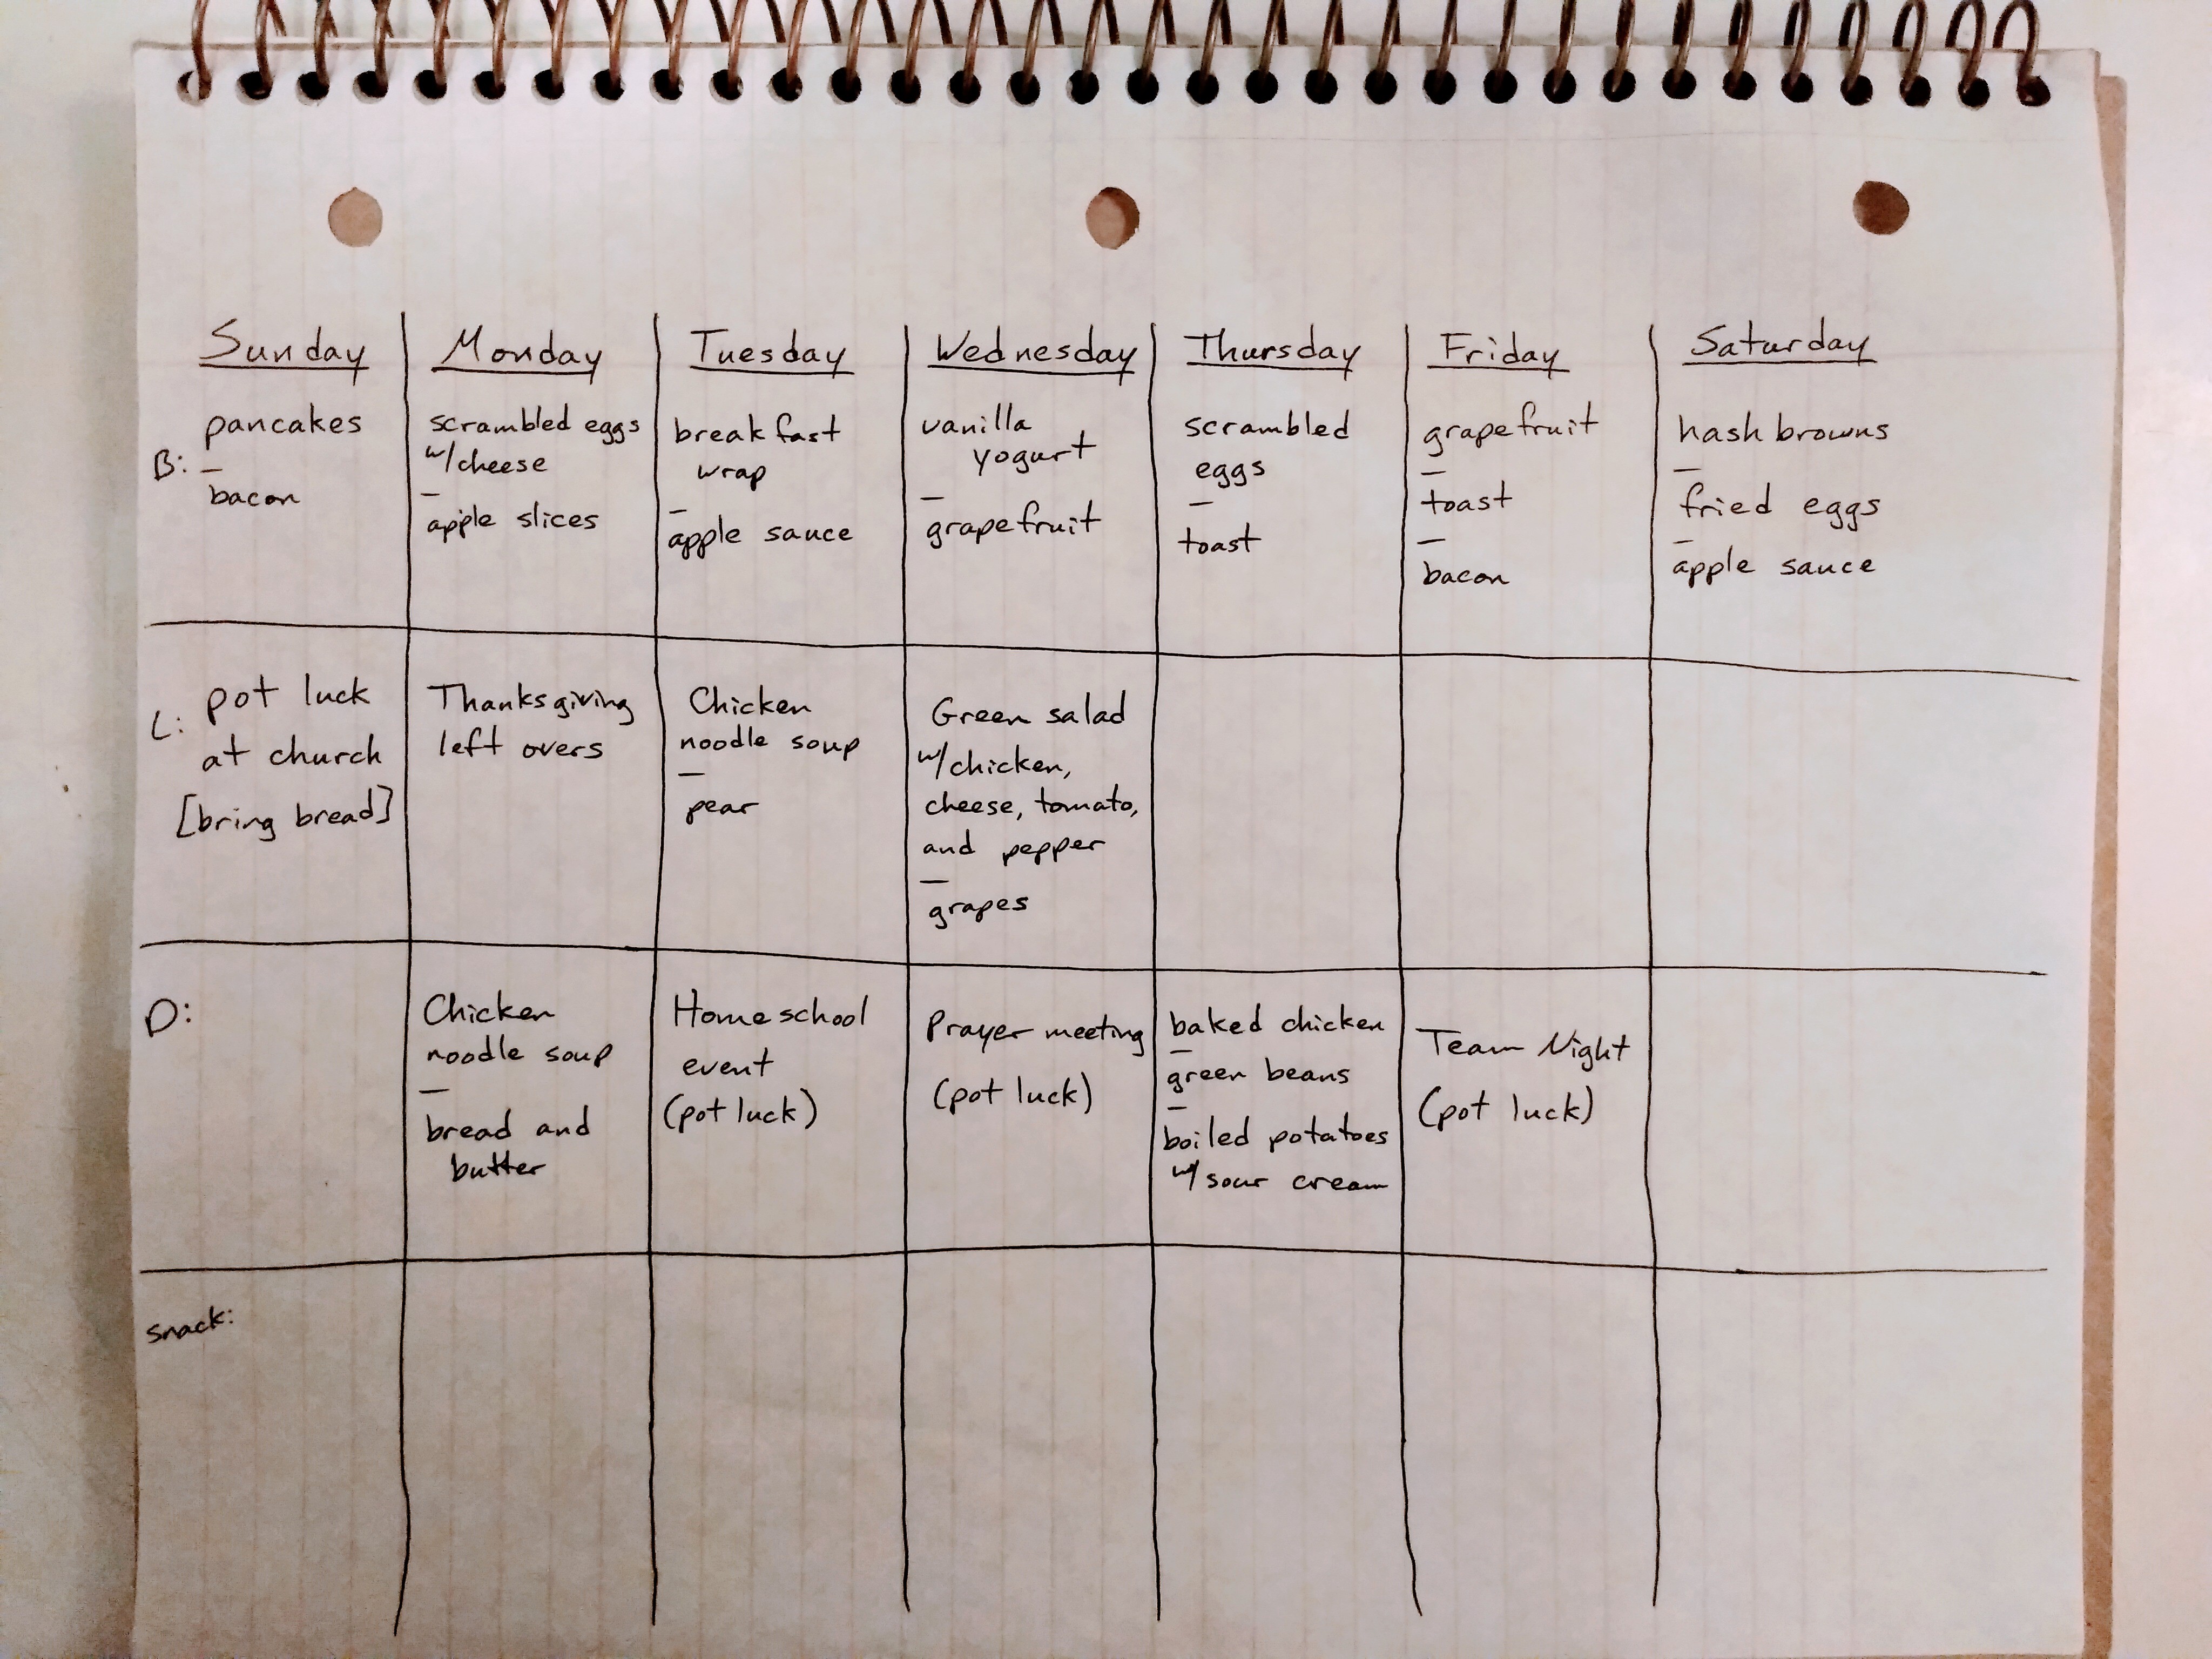 Sunday Monday Tuesday Wednesday Thursday Friday Saturday
B:
pancakes
–
bacon
scrambled eggs
w/cheese
–
apple slices
breakfast
wrap
–
apple sauce
vanilla
yogurt
–
grapefruit
scrambled
eggs
–
toast
grapefruit
–
toast
–
bacon
hash browns
–
fried eggs
–
apple sauce
L:
pot luck
at church
[bring bread]
Thanksgiving
left overs
Chicken
noodle soup
–
pear
Green salad
w/chicken,
cheese, tomato,
and pepper
–
grapes
D:
Chicken
noodle soup
–
bread and
butter
Homeschool
event
(pot luck)
Prayer meeting
(pot luck)
baked chicken
–
green beans
–
boiled potatoes
w/ sour cream
Team Night
(pot luck)
Snack: